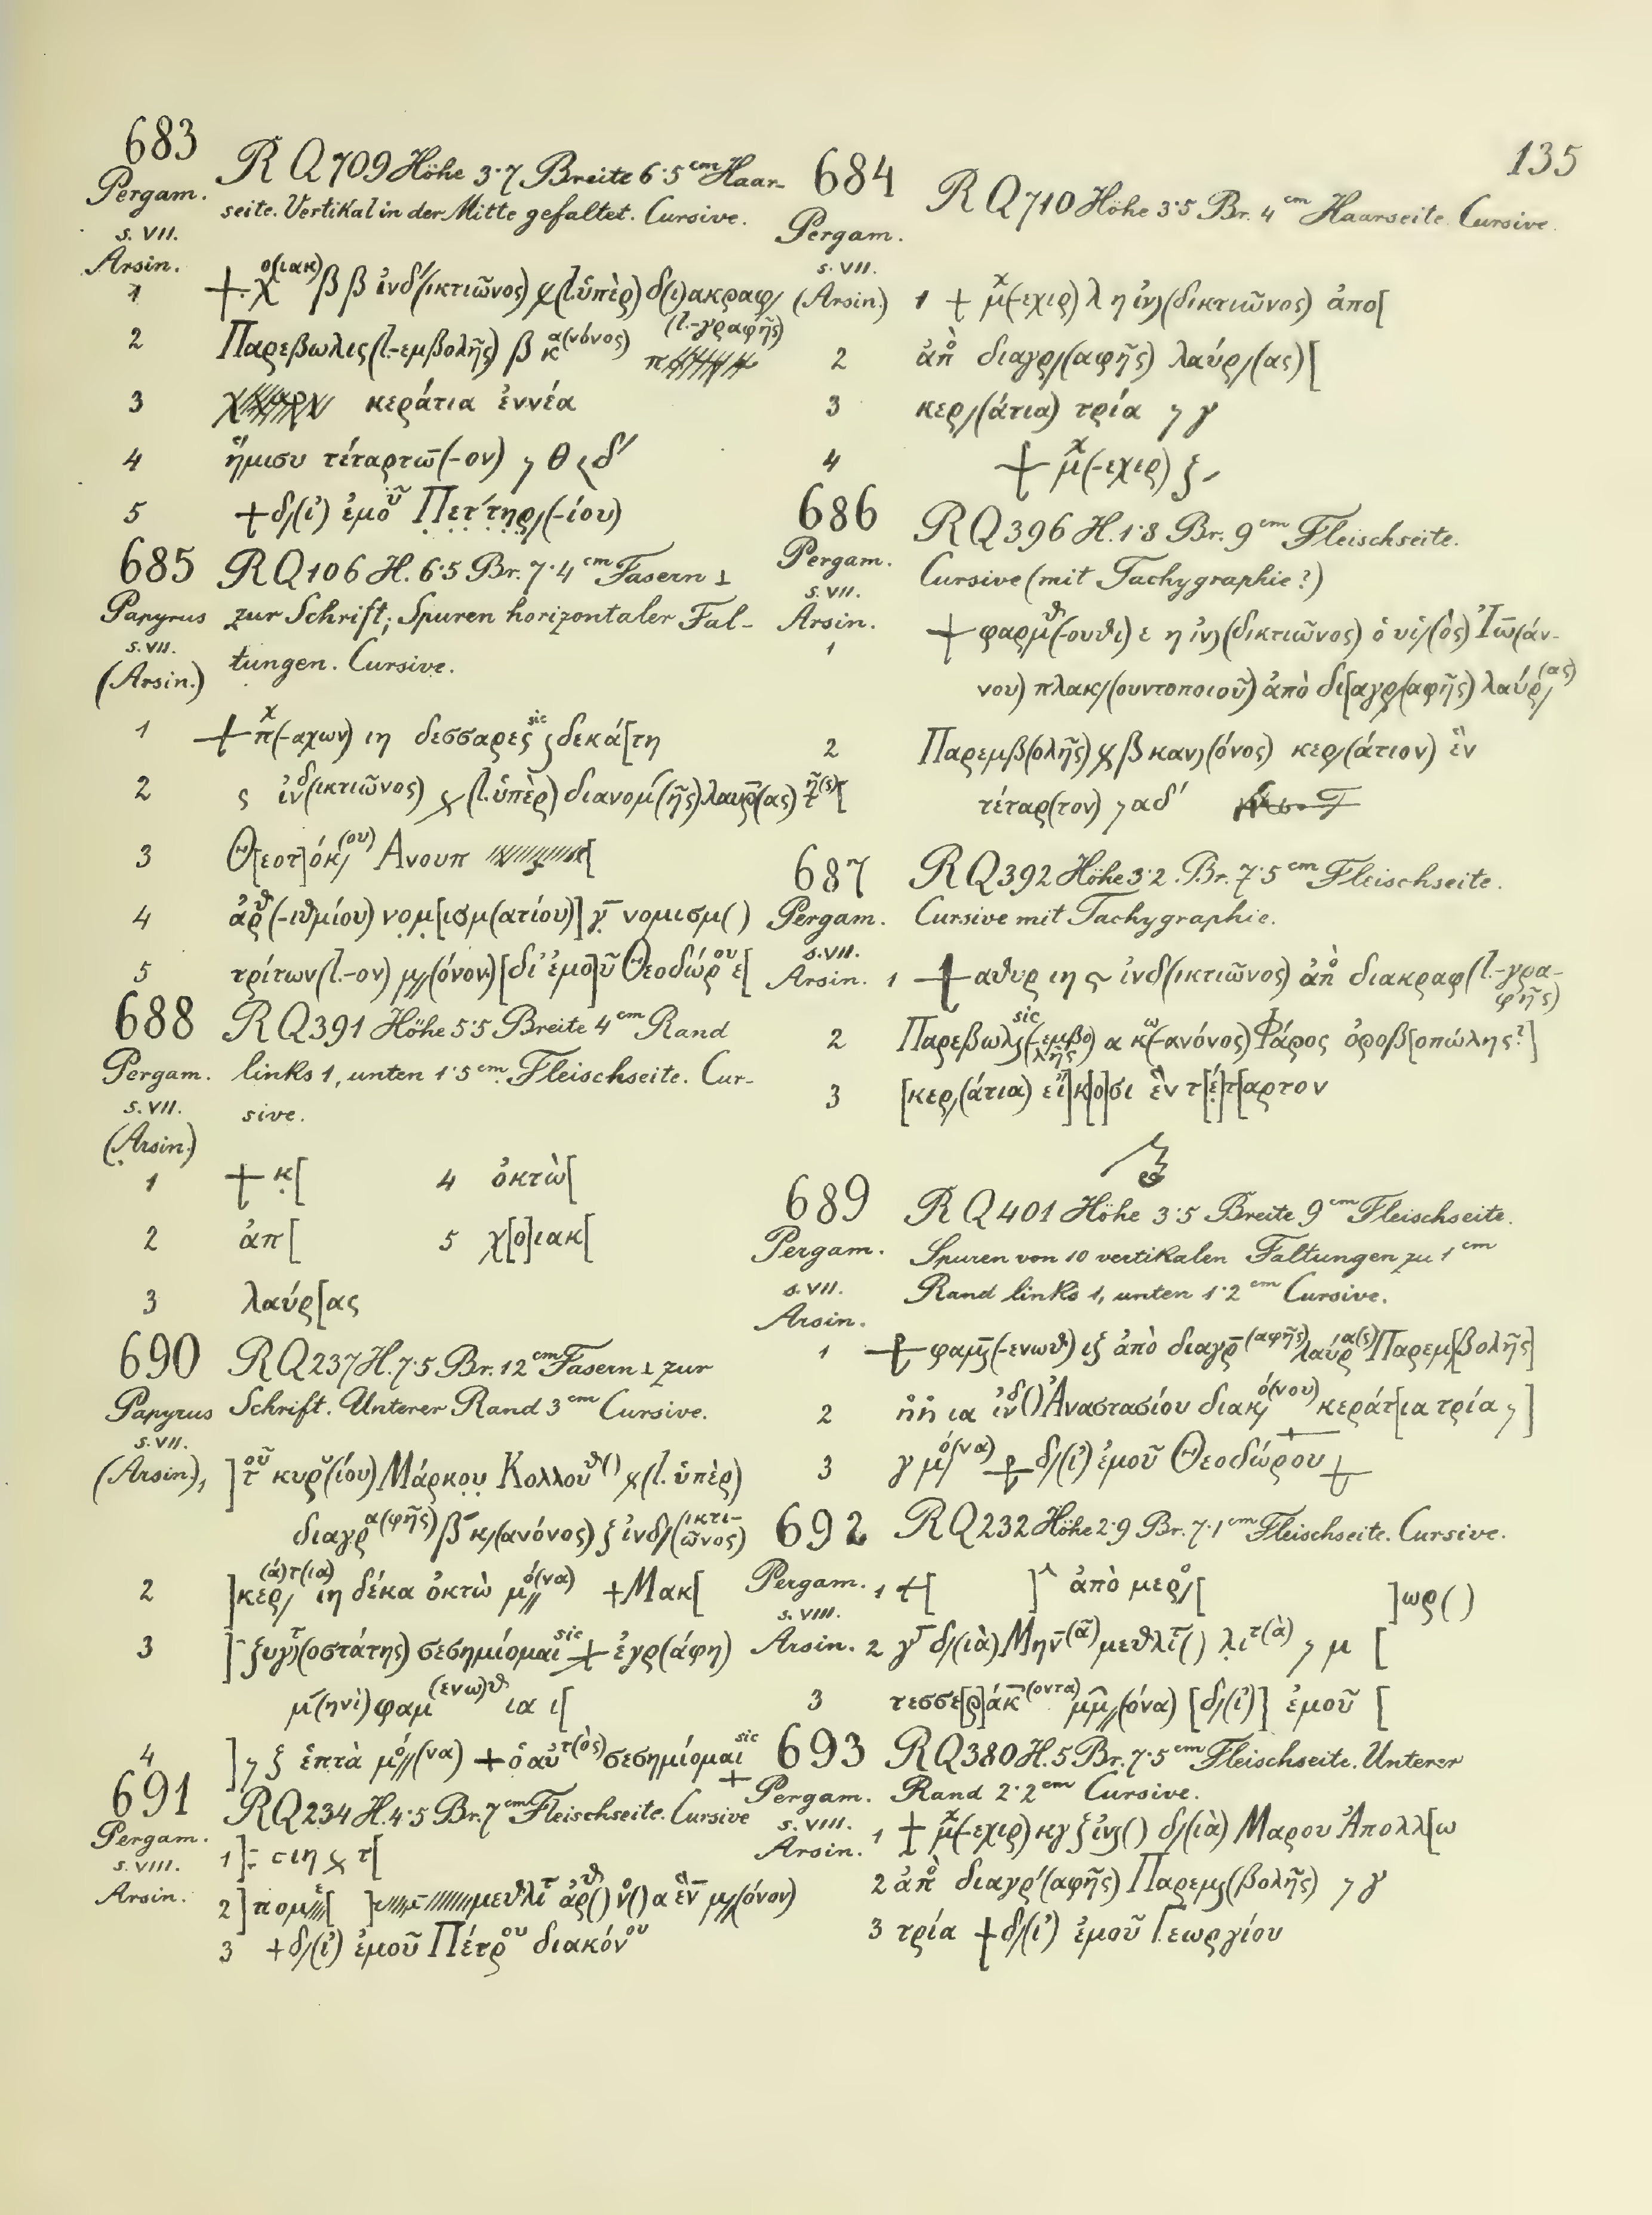 135
683
Pergam.
s. VII.
Arsin.
R Q 709 Höhe 3·7 Breite 6·5 cm Haar-
seite. Vertikal in der Mitte gefaltet. Cursive.
1 + χ ο(ιακ) β β ἰνδ/(ικτιῶνος) χ(l. ὑπὲρ) δ(ι)ακραφ/
(l. -γραφῆς)
2 Παρεβωλις (l. -εμβολῆς) β κ α(νόνος) π
3 κεράτια ἐννέα
4 ἥμισυ τέταρτω̄(-ον) 𐅍 θ ς δ´
5 + δ/(ι᾽) ἐμοῦ Πετ´τηρ/(-ίου)
684
Pergam.
s. VII.
(Arsin.)
R Q 710 Höhe 3·5 Br. 4 cm Haarseite. Cursive.
1 + μ χ(-εχιρ) λ η ἰν)(δικτιῶνος) ἀπο[
2 ἀπ ὸ διαγρ/(αφῆς) λαύρ/(ας) [
3 κερ/(άτια) τρία 𐅍 γ
4 + μ χ(-εχιρ) ξ
685
Papyrus
s. VII.
(Arsin.)
R Q 106 H. 6·5 Br. 7·4 cm Fasern ⊥
zur Schrift; Spuren horizontaler Fal-
tungen. Cursive.
1 + π χ(-αχων) ιη δεσσαρες sic ς δεκά[τη
2 ς ἰν δ(ικτιῶνος) χ (l. ὑπὲρ) διανομ´(ῆς) λαυρ̄(ας) τ ῆ(ς) [
3 Θ[εοτ]όκ/(ου) Ανουπ [
4 ἀρ θ(-ιθμίου) νομ[ισμ(ατίου)] γ̄ νομισμ( )
5 τρίτων (l. -ον) μ//(όνον) [δι᾽ ἐμο]ῦ Θεοδώρ ου ε[
686
Pergam.
s. VII.
Arsin.
R Q 396 H. 1·8 Br. 9 cm Fleischseite.
Cursive (mit Tachygraphie?)
1 + φαρμ θ(-ουθι) ε η ἰν)(δικτιῶνος) ὁ υἱ/(ὸς) Ἰω̄(άν-
νου) πλακ/(ουντοποιοῦ) ἀπὸ δι[αγρ/(αφῆς) λαύρ/(ας)
2 Παρεμβ(ολῆς) χ β καν)(όνος) κερ/(άτιον) ἓν
τέταρ(τον) 𐅍 α δ´
687
Pergam.
s. VII.
Arsin.
R Q 392 Höhe 3·2. Br. 7·5 cm Fleischseite.
Cursive mit Tachygraphie.
1 + αθυρ ιη ς ἰνδ(ικτιῶνος) ἀπ ὸ διακραφ(l. -γρα-
φῆς)
2 Παρεβωλς sic (-εμβο
λῆς) α κ ω(-ανόνος) Φάρος ὀροβ[οπώλης?]
3 [κερ/(άτια) εἴ]κ[ο]σι ἓν τ[έ]τ[αρτον
688
Pergam.
s. VII.
(Arsin.)
R Q 391 Höhe 5·5 Breite 4 cm Rand
links 1, unten 1·5 cm. Fleischseite. Cur-
sive.
1 + κ[
2 ἀπ[
3 λαύρ[ας
4 ὀκτὼ[
5 χ[ο]ιακ[
689
Pergam.
s. VII.
Arsin.
R Q 401 Höhe 3·5 Breite 9 cm Fleischseite.
Spuren von 10 vertikalen Faltungen zu 1 cm
Rand links 1, unten 1·2 cm Cursive.
1 + φαμς(-ενωθ) ιξ ἀπὸ διαγρ̄(αφῆς) λαύρ α(ς) Παρεμ[βολῆς]
2 ια ἰν δ( ) Ἀναστασίου διακ/ ό(νου) κεράτ[ια τρία 𐅍 ]
3 γ μ/ ό(να) + δ/(ι᾽) ἐμοῦ Θεοδώρου +
690
Papyrus
s. VII.
(Arsin.)
R Q 237 H. 7·5 Br. 12 cm Fasern ⊥ zur
Schrift. Unterer Rand 3 cm Cursive.
1 ]τ οῦ κυρ(ίου) Μάρκου Κολλου θ( ) χ (l. ὑπὲρ)
διαγρ α(φῆς) β κ/(ανόνος) ξ ἰνδ/(ικτι-
ῶνος)
2 ]κερ/ (ά)τ(ια) ιη δέκα ὀκτὼ μ// ό(να) + Μακ[
3 ] ζυγ τ(οστάτης) σεσημίομαι sic + ἐγρ(άφη)
μ´(ηνὶ) φαμ (ενω)θ ια ι[
4 ] 𐅍 ξ ἑπτὰ μό//(να) + ὁ αὐ τ(ὸς) σεσημίομαι sic +
691
Pergam.
s. VIII.
Arsin.
R Q 234 H. 4·5 Br. 7 cm Fleischseite. Cursive
1 ] ιη χ τ[
2 ] πομ [ ] μεθλι τ ἀρ θ( ) ν ο( ) α ἓν μ//(όνον)
3 + δ/(ι᾽) ἐμοῦ Πέτρ ου διακόν ου
692
Pergam.
s. VIII.
Arsin.
R Q 232 Höhe 2·9 Br. 7·1 cm Fleischseite. Cursive.
1 +[ ] ἀπὸ μερ/ ο[ ]ωρ( )
2 γ δ/(ιὰ) Μην̄(ᾶ) μεθλι τ( ) λι τ(ὰ) 𐅍 μ [
3 τεσσε[ρ]άκ̄(οντα) μμ//(όνα) [δ/(ι᾽)] ἐμοῦ [
693
Pergam.
s. VIII.
Arsin.
R Q 380 H. 5 Br. 7·5 cm Fleischseite. Unterer
Rand 2·2 cm Cursive.
1 + μ χ(-εχιρ) κγ ξ ἰνς( ) δ/(ιὰ) Μαρου Ἀπολλ[ω
2 ἀπ ὸ διαγρ´(αφῆς) Παρεμς(βολῆς) 𐅍 γ
3 τρία + δ/(ι᾽) ἐμοῦ Γεωργίου